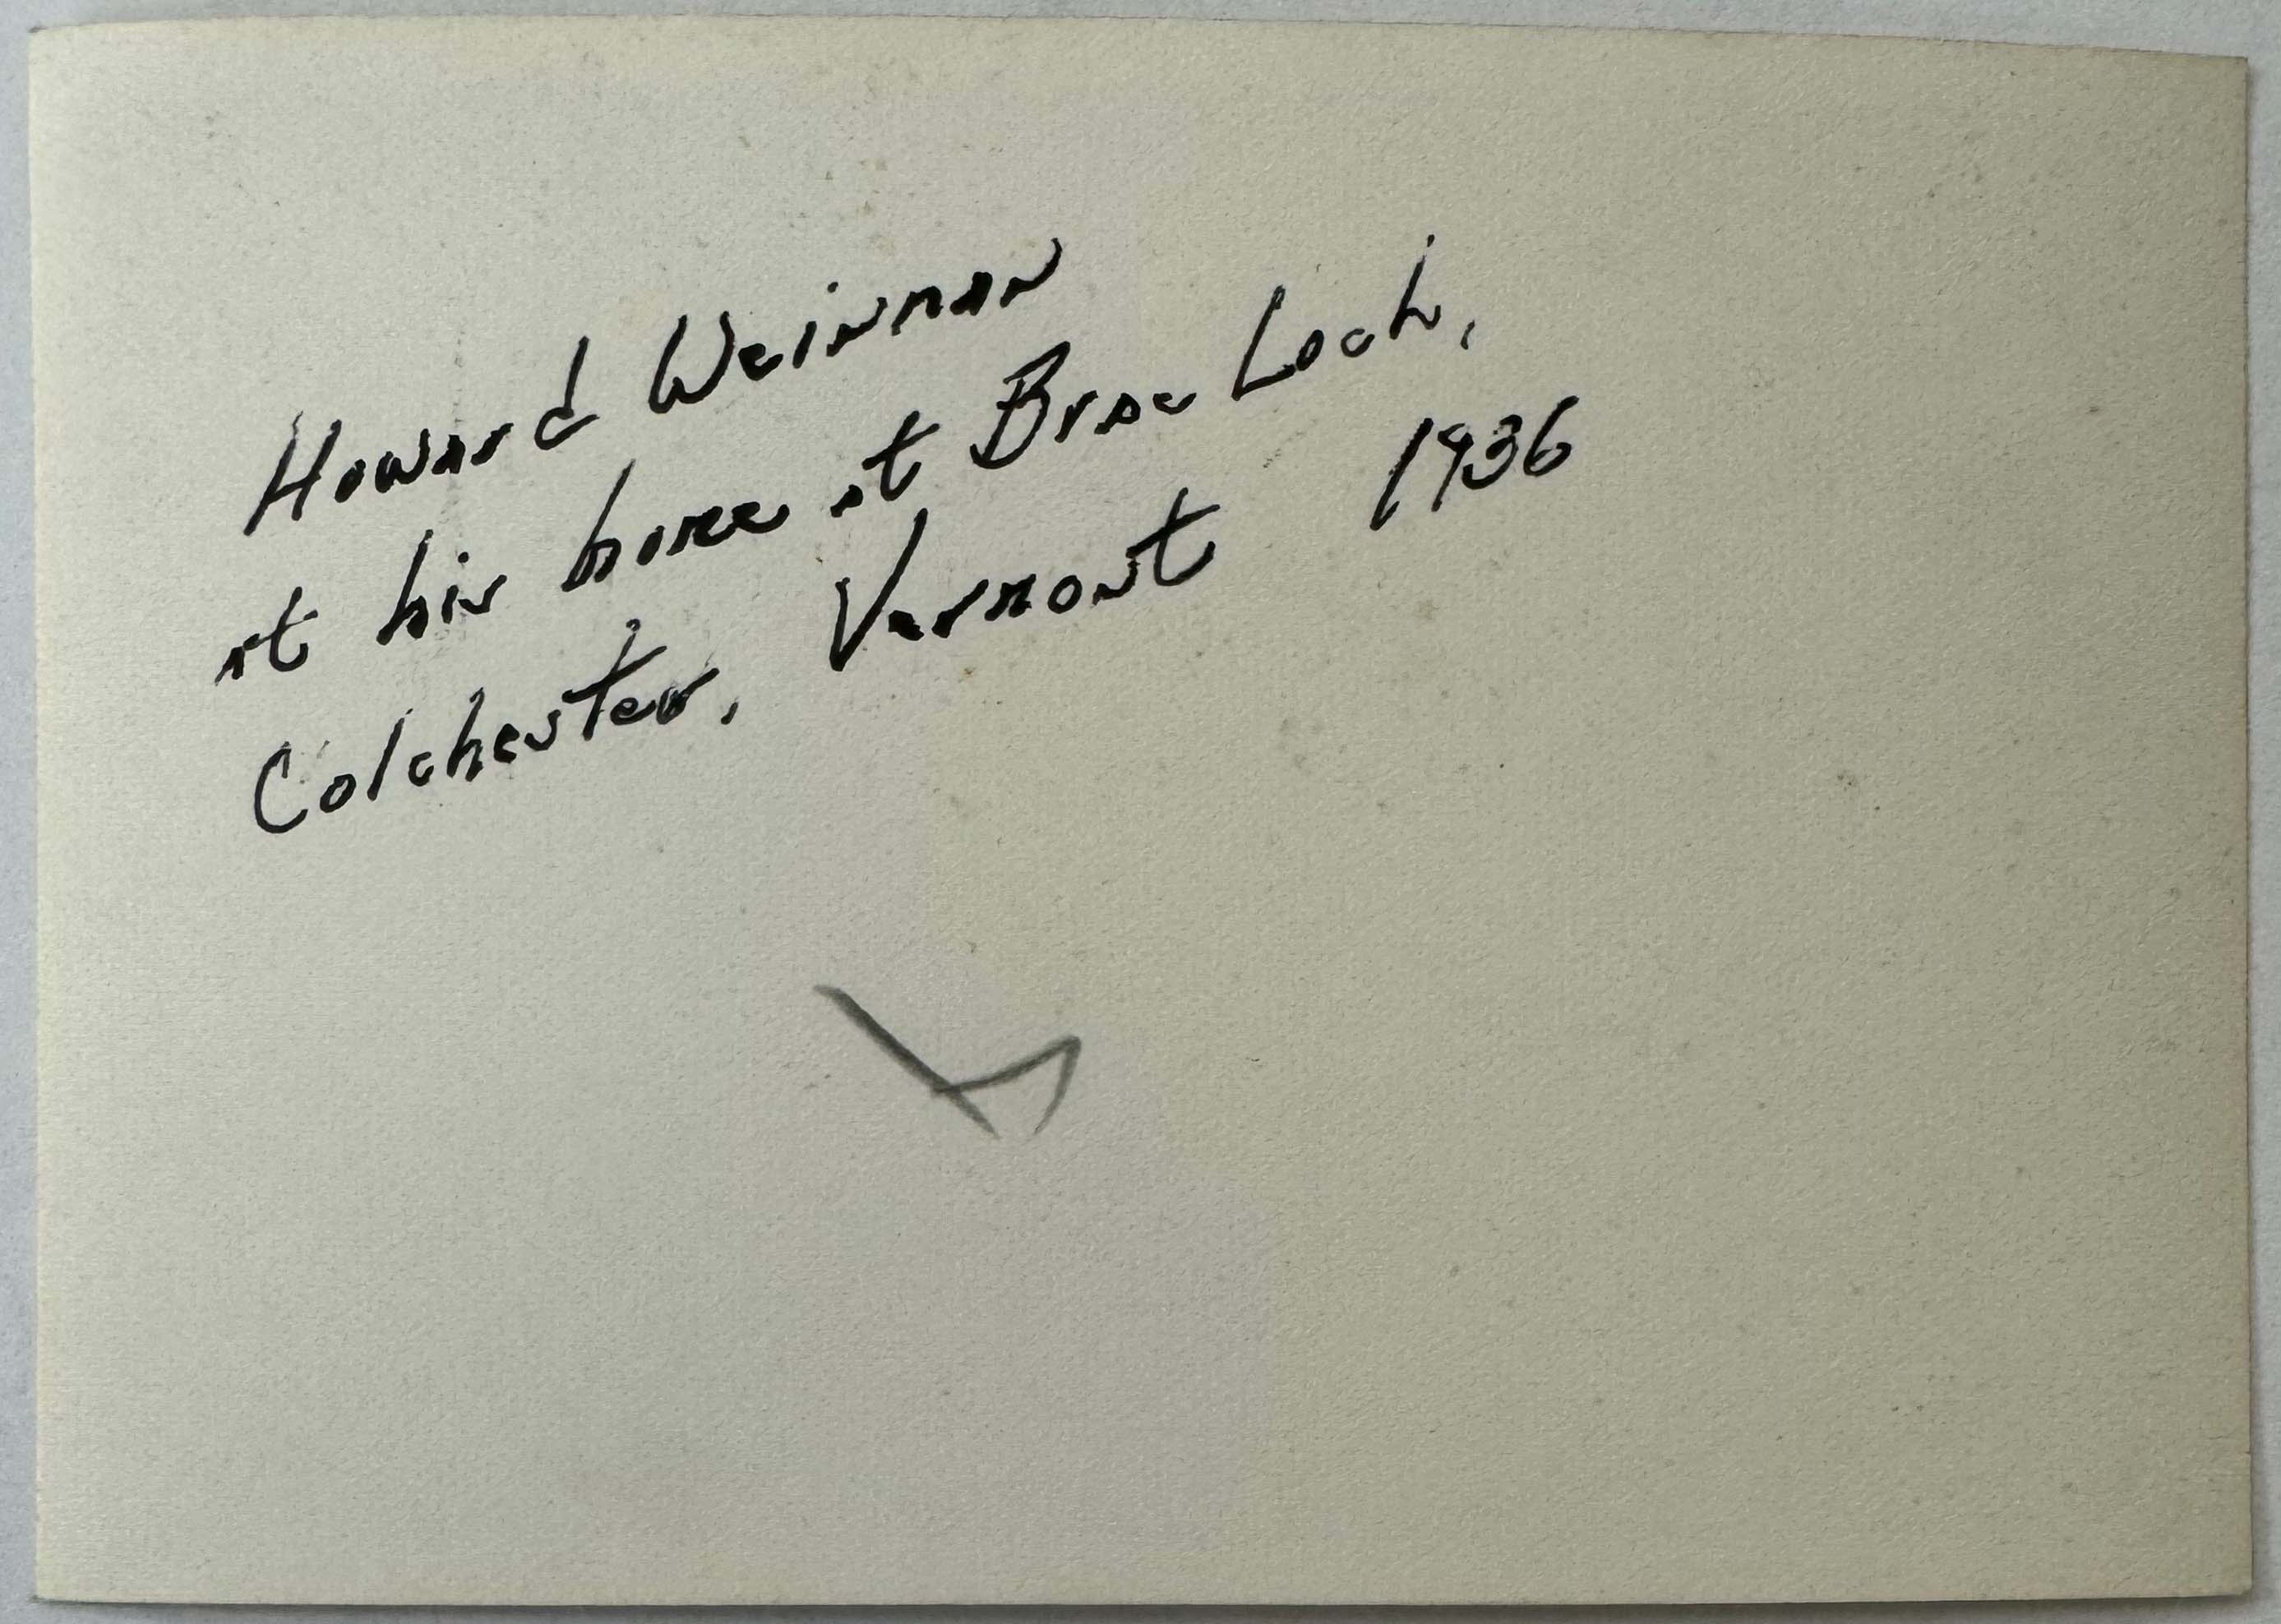 Howard Weinman
at his home at Brae Loch,
Colchester, Vermont 1936